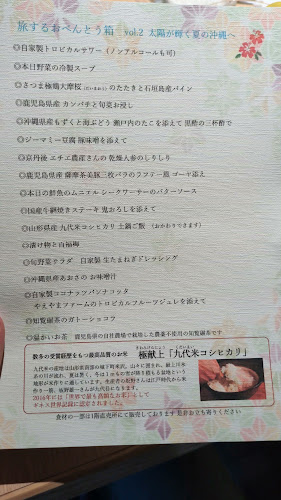 旅するおべんとう箱 vol.2 太陽が輝く夏の沖縄へ
◎自家製トロピカルサワー（ノンアルコールも可）
◎本日野菜の冷製スープ
◎さつま極鶏大摩桜(だいまおう)のたたきと石垣島産パイン
◎鹿児島県産 カンパチと旬菜お浸し
◎沖縄県産もずくと海ぶどう 瀬戸内のたこを添えて 黒酢の三杯酢で
◎ジーマミー豆腐 豚味噌を添えて
◎京丹後 エチエ農産さんの 乾燥人参のしりしり
◎鹿児島県産 薩摩茶美豚三枚バラのラフテー風 ゴーヤ添え
◎本日の鮮魚のムニエル シークワーサーのバターソース
◎国産牛網焼きステーキ 鬼おろしを添えて
◎山形県産 九代米コシヒカリ 土鍋ご飯 （おかわりできます）
◎漬け物と白福梅
◎旬野菜サラダ 自家製 生たまねぎドレッシング
◎沖縄県産あおさの お味噌汁
◎自家製ココナッツパンナコッタ
やえやまファームのトロピカルフルーツジュレを添えて
◎知覧銘茶のガトーショコラ
◎温かいお茶 鹿児島県の自社農場で栽培した農薬不使用の知覧銘茶です
数多の受賞経歴をもつ最高品質のお米
極献上「九代米コシヒカリ」
2016年には「世界で最も高価なお米」として
ギネス世界記録に認定されました。
食材の一部は1階直売所にて販売しております 是非お立ち寄りください